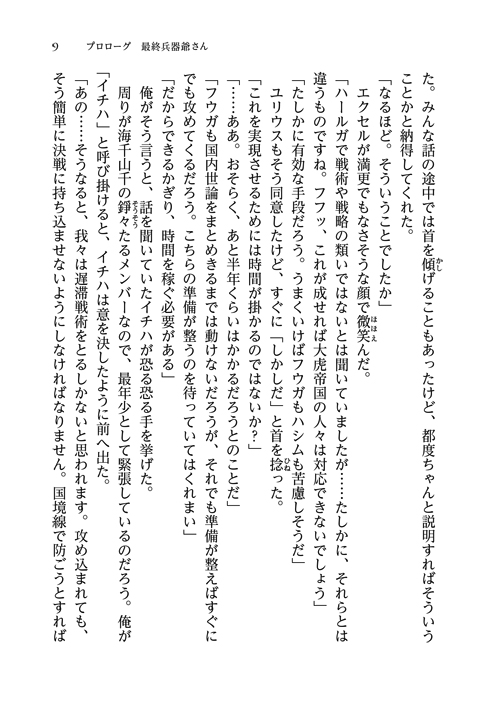 9　プロローグ　最終兵器爺さん
た。みんな話の途中では首を傾げることもあったけど、都度ちゃんと説明すればそういう
ことかと納得してくれた。
「なるほど。そういうことでしたか」
エクセルが満更でもなさそうな顔で微笑んだ。
「ハールガで戦術や戦略の類いではないとは聞いていましたが……たしかに、それらとは
違うものですね。フフッ、これが成せれば大虎帝国の人々は対応できないでしょう」
「たしかに有効な手段だろう。うまくいけばフウガもハシムも苦慮しそうだ」
ユリウスもそう同意したけど、すぐに「しかしだ」と首を捻った。
「これを実現させるためには時間が掛かるのではないか？」
「……ああ。おそらく、あと半年くらいはかかるだろうとのことだ」
「フウガも国内世論をまとめきるまでは動けないだろうが、それでも準備が整えばすぐに
でも攻めてくるだろう。こちらの準備が整うのを待っていてはくれまい」
「だからできるかぎり、時間を稼ぐ必要がある」
俺がそう言うと、話を聞いていたイチハが恐る恐る手を挙げた。
周りが海千山千の錚々たるメンバーなので、最年少として緊張しているのだろう。俺が
「イチハ」と呼び掛けると、イチハは意を決したように前へ出た。
「あの……そうなると、我々は遅滞戦術をとるしかないと思われます。攻め込まれても、
そう簡単に決戦に持ち込ませないようにしなければなりません。国境線で防ごうとすれば